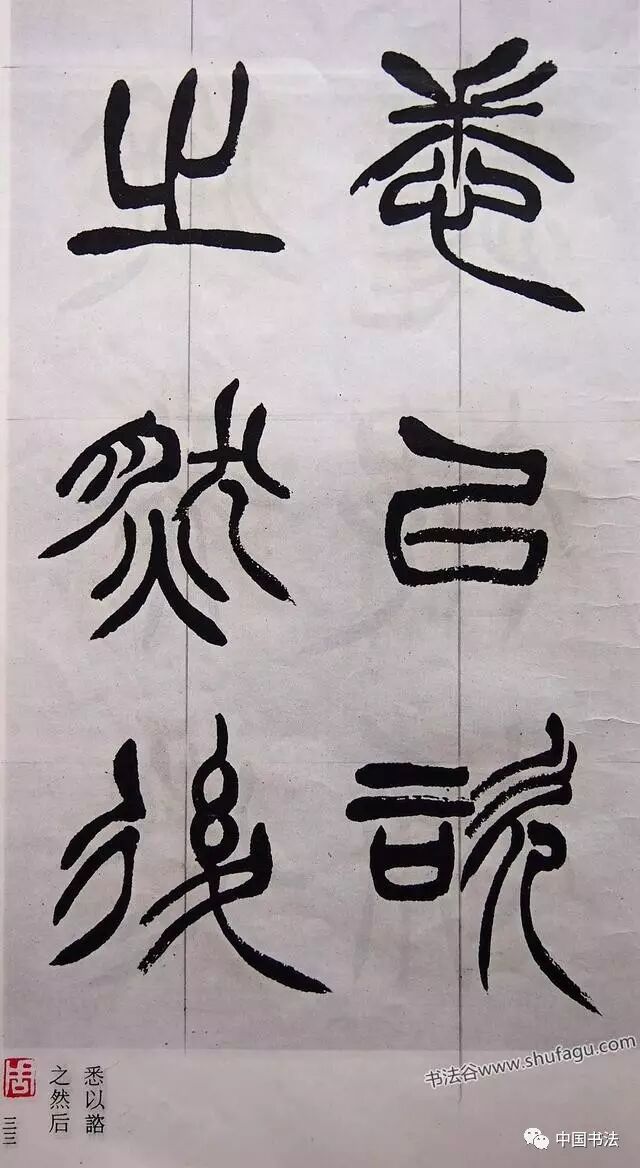 悉以諮
之然後
书法谷www.shufagu.com
悉以諮
之然后
三三
中国书法